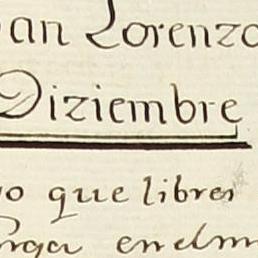 an Lorenzo
Diziembre
yo que libres
en el m